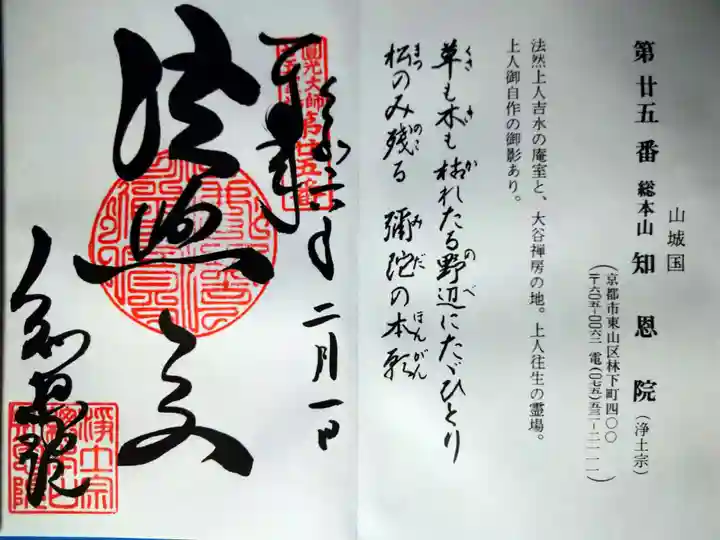 山城国
第廿五番 総本山 知恩院(浄土宗)
(京都市東山区林下町四〇〇
〒六〇五-〇〇六二 電(〇七五)五三一-二一一一)
法然上人吉水の庵室と、大谷禅房の地。上人往生の霊場。
上人御自作の御影あり。
くさ き か のべ
草も木も枯れたる野辺にたゞひとり
まつ のこ みだ ほんがん
松のみ残る 彌陀の本願
圓光大師
第廿五番
二月一日
知恩院
浄土宗
總本山
知恩院